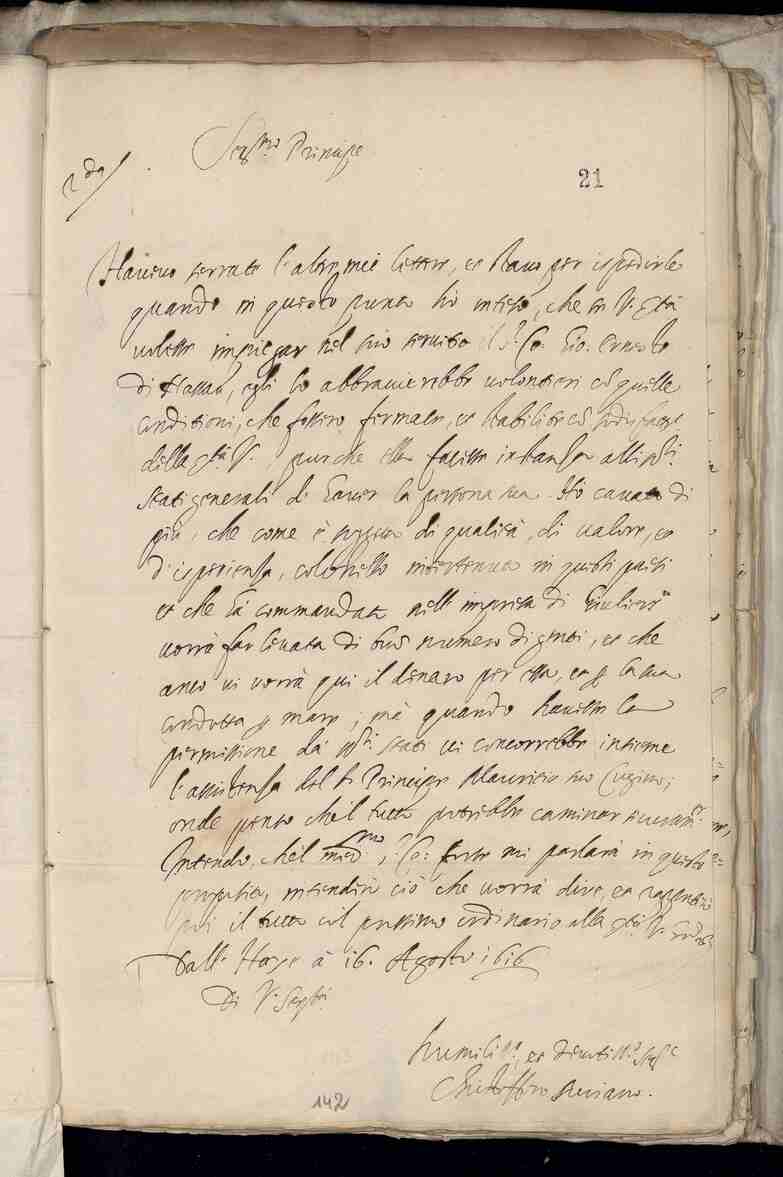 2da
Ser.mo Principe
21
Havevo serrate l'altre mie lettere, et stavo per ispedirle
quando in questo punto hò inteso, che se V. Stà
volesse impiegar nel suo servitio il S.r Co: Gio: Ernesto
di Nassau, egli lo abbraccierebbe volontieri cō quelle
conditioni, che fossero fermate, et stabilite cō
della Stà V. purche ella facesse instanza alli SS.ri
stati generali di haver la persona sua. Hò cavato di
più, che come è di qualità, di valore, et
d'isperienza, colonello intertenuto in questi paesi
et che hà commandato nell'impresa di Giuliers
vorrà far levata di buō numero di genti, et che
anco vi vorrà qui il denaro per essa, et p la sua
condotta p mare; mà quando havesse la
permissione da SS.ri stati vi concorrebbe insieme
l'assistenza del S.r Principe Mauricio suo Cugino;
onde penso che'l tutto potrebbe caminar
Intendo, che'l med.mo S.r Co: forse mi parlarà in questo
proposito, intenderò ciò che vorrà dire, et
poi il tutto col prossimo ordinario alla Stà V.
Dall'Haya à 16. Agosto 1616
Di V. Ser.tà
humiliss.o et devotiss.o
Christofforo Suriano.
142